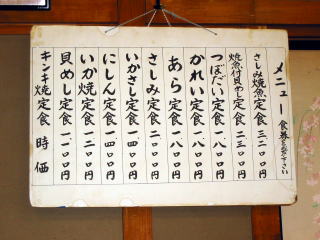 メニュー 食券を求め下さい
さしみ焼魚定食 三二〇〇円
焼魚付貝めし定食 二三〇〇円
つぼだい定食 一、八〇〇円
かれい定食 一、八〇〇円
あら定食 一、八〇〇円
さしみ定食 二、〇〇〇円
いかさし定食 一、四〇〇円
にしん定食 一、四〇〇円
いか焼定食 一、二〇〇円
貝めし定食 一、一〇〇円
キンキ焼定食 時価